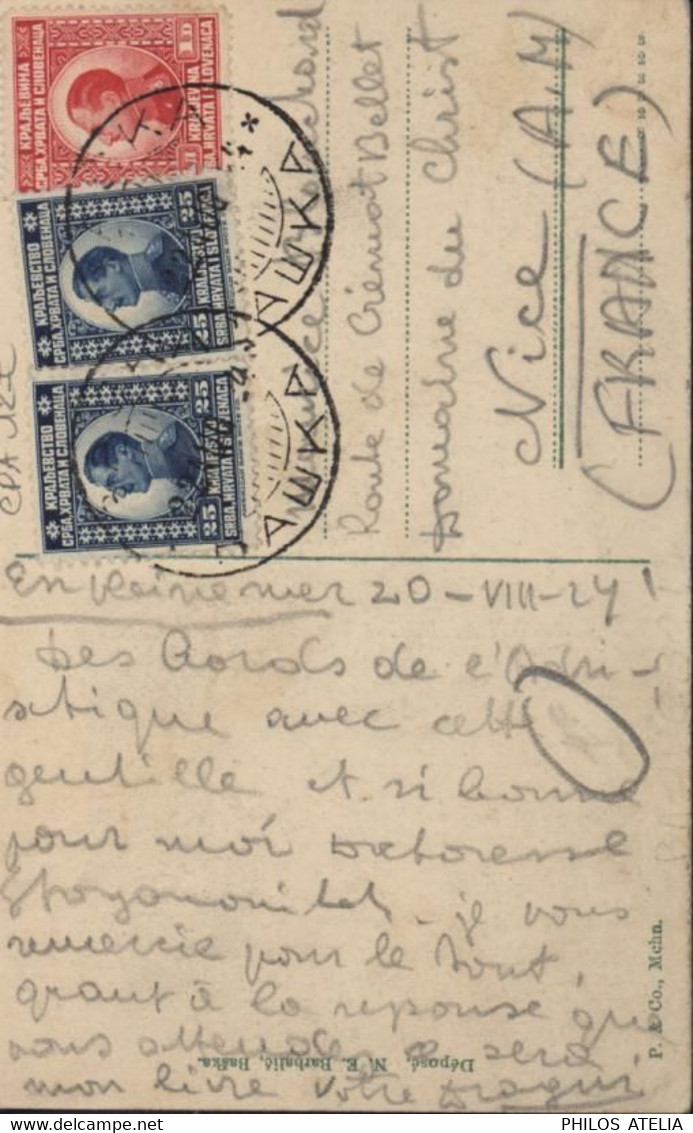 КРАЉЕВИНА
СРБА, ХРВАТА И СЛОВЕНАЦА
1 D
KRALJEVINA
SRBA, HRVATA I SLOVENACA
КРАЉЕВСТВО
СРБА, ХРВАТА И СЛОВЕНАЦА
25 25
KRALJEVSTVO
SRBA, HRVATA I SLOVENACA
КРАЉЕВСТВО
СРБА, ХРВАТА И СЛОВЕНАЦА
25 25
KRALJEVSTVO
SRBA, HRVATA I SLOVENACA
БАШКА
БАШКА
CPA 12€
Route de Crémat Bellet
Domaine du Christ
Nice (A, M)
(FRANCE)
En pleine mer 20-VIII-24!
Des bords de l'Adri-
atique avec cette
gentille et si bonne
pour moi Doctoresse
je vous
remercie pour le tout,
quant à la reponse que
vous attendez ce sera
mon livre Votre Dragui
Déposé, N. E. Barbalić, Baška.
P. & Co., Mchn.
PHILOS ATELIA